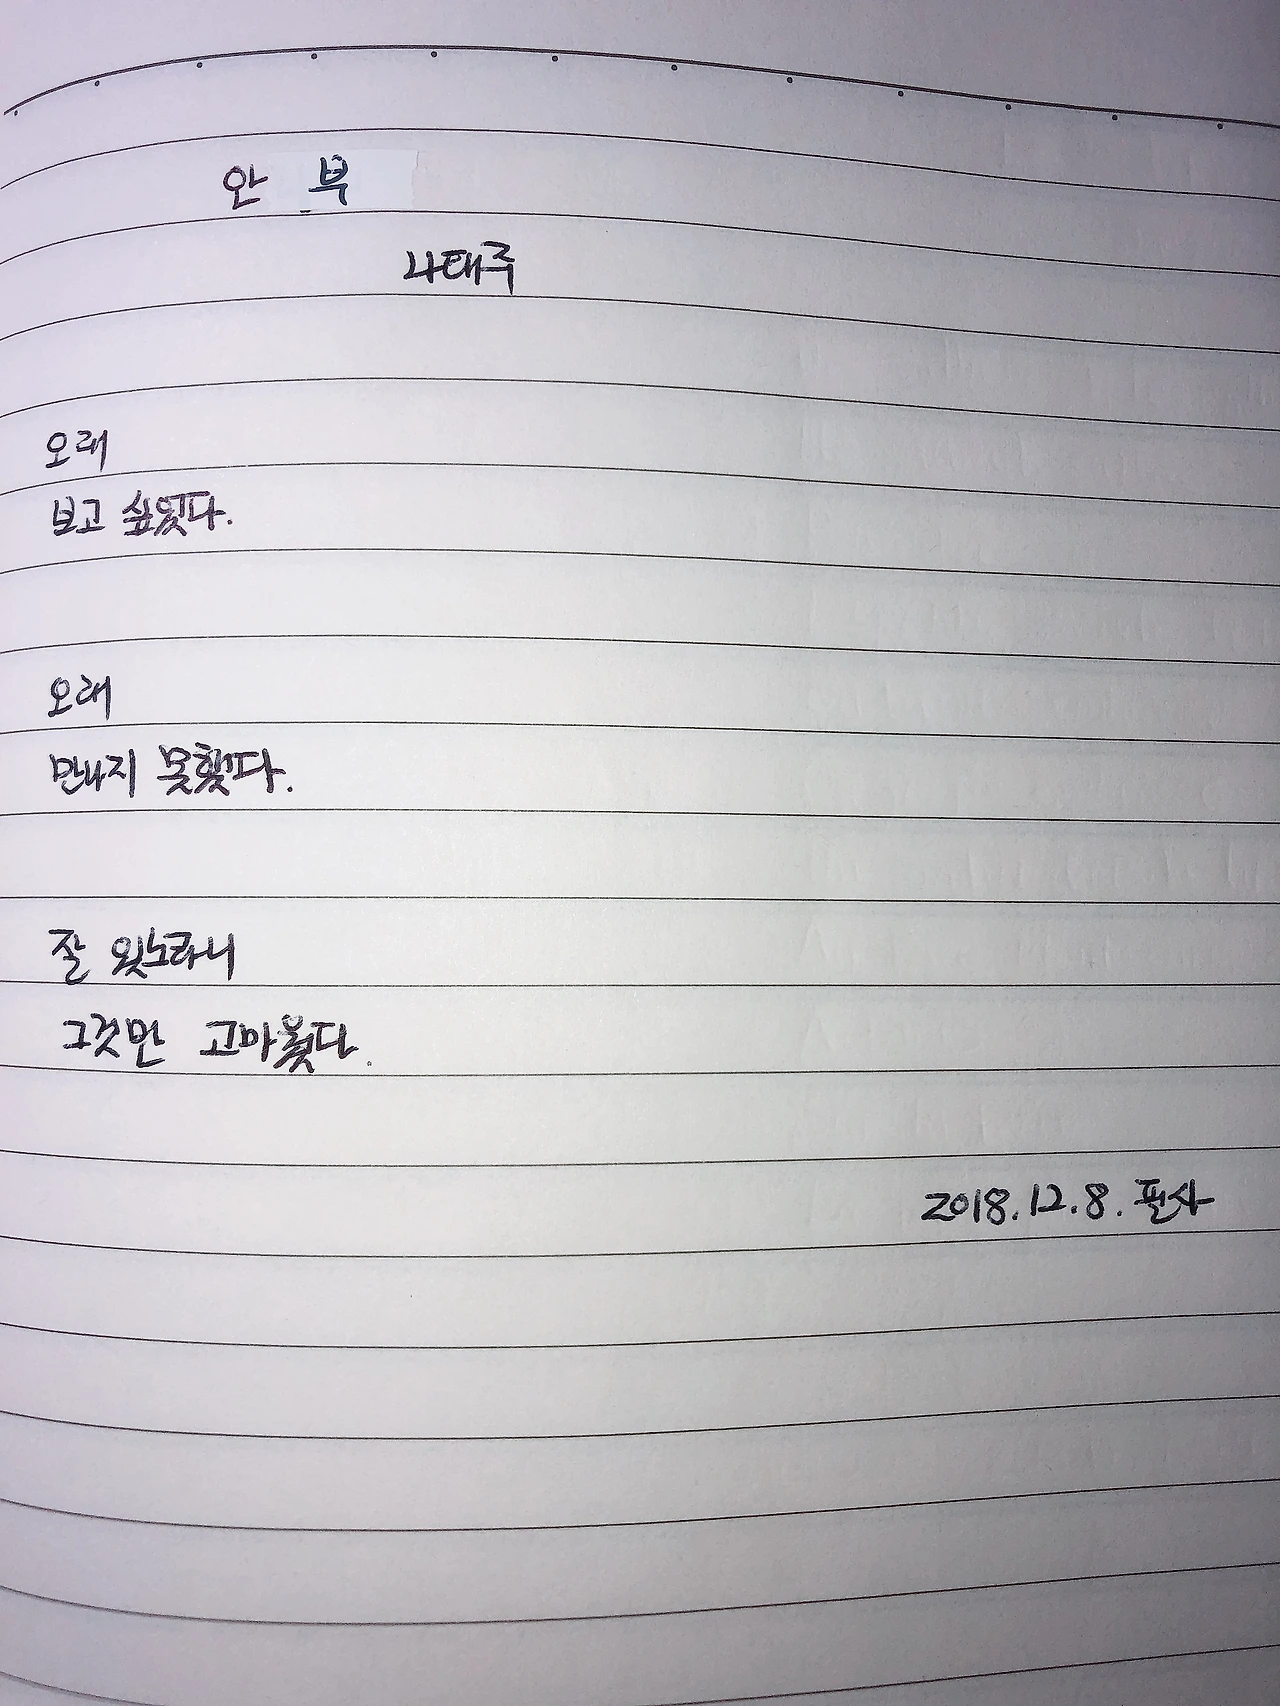 안 부
나태주
오래
보고 싶었다.
오래
만나지 못했다.
잘 있노라니
그것만 고마웠다.
2018.12.8. 필사